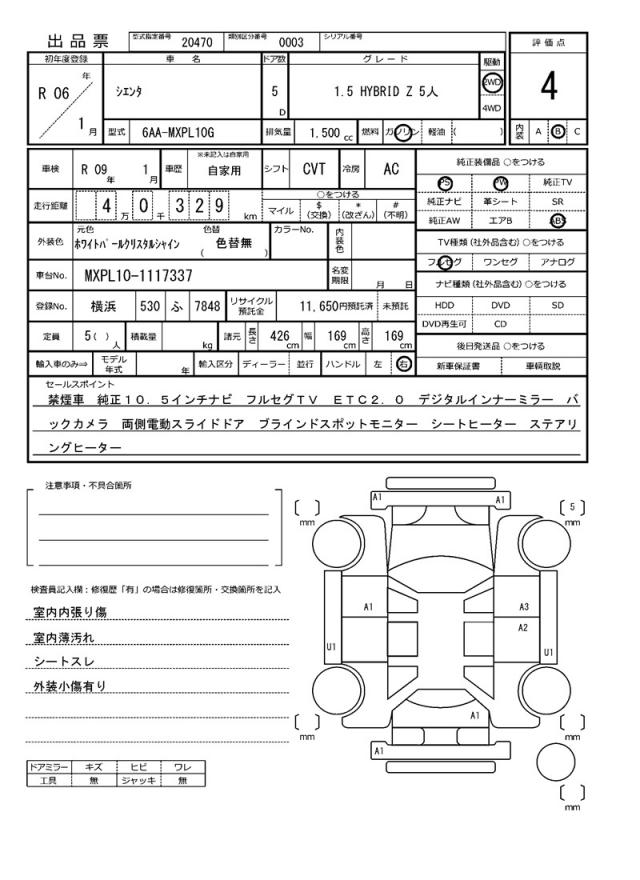 出品票
型式指定番号 20470 類別区分番号 0003 シリアル番号
評価点
4
初年度登録 車名 ドア数 グレード 駆動
R 06 年 1 月
シエンタ
5 D
1.5 HYBRID Z 5人
2WD
4WD
型式 6AA-MXPL10G 排気量 1.500 cc 燃料 ガソリン 軽油 ( )
内装 A B C
車検 R 09 年 1 月 車歴 ※未記入は自家用 自家用 シフト CVT 冷房 AC
走行距離 4 万 0 千 3 2 9 km
○をつける
マイル $ (交換) * (改ざん) # (不明)
外装色 元色 ホワイトパールクリスタルシャイン 色替 ( 色替無 ) カラーNo. 内装色
車台No. MXPL10-1117337 名変期限 月 日
登録No. 横浜 530 ふ 7848 リサイクル預託金 11,650円預託済 未預託
定員 5( ) 人 積載量 kg 諸元 長さ 426 cm 幅 169 cm 高さ 169 cm
輸入車のみ⇒ モデル年式 年 輸入区分 ディーラー 並行 ハンドル 左 右
純正装備品 ○をつける
PS PW 純正TV
純正ナビ 革シート SR
純正AW エアB ABS
TV種類(社外品含む)○をつける
フルセグ ワンセグ アナログ
ナビ種類(社外品含む)○をつける
HDD DVD SD
DVD再生可 CD
後日発送品 ○をつける
新車保証書 車輌取説
セールスポイント
禁煙車 純正10.5インチナビ フルセグTV ETC2.0 デジタルインナーミラー バ
ックカメラ 両側電動スライドドア ブラインドスポットモニター シートヒーター ステアリ
ングヒーター
注意事項・不具合箇所
検査員記入欄:修復歴「有」の場合は修復箇所・交換箇所を記入
室内内張り傷
室内薄汚れ
シートスレ
外装小傷有り
ドアミラー キズ ヒビ ワレ
工具 無 ジャッキ 無
A1 A1
[ ] mm
[ 5 ] mm
A1 A3
A2
U1 U1
A1
A1
[ ] mm
[ ] mm
[ ] mm